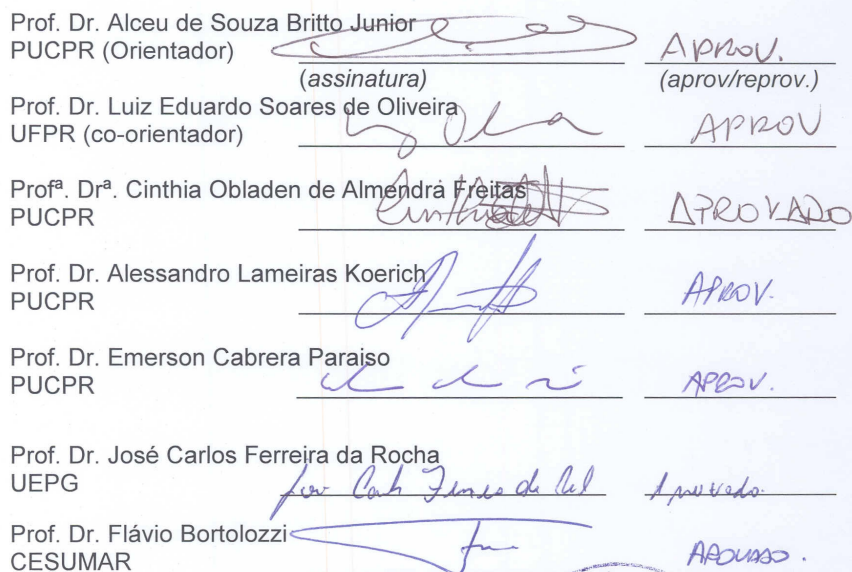 Prof. Dr. Alceu de Souza Britto Junior
PUCPR (Orientador) APROV.
(assinatura) (aprov/reprov.)
Prof. Dr. Luiz Eduardo Soares de Oliveira
UFPR (co-orientador) APROV
Profª. Drª. Cinthia Obladen de Almendra Freitas
PUCPR APROVADO
Prof. Dr. Alessandro Lameiras Koerich
PUCPR APROV.
Prof. Dr. Emerson Cabrera Paraiso
PUCPR APROV.
Prof. Dr. José Carlos Ferreira da Rocha
UEPG Aprovado
Prof. Dr. Flávio Bortolozzi
CESUMAR